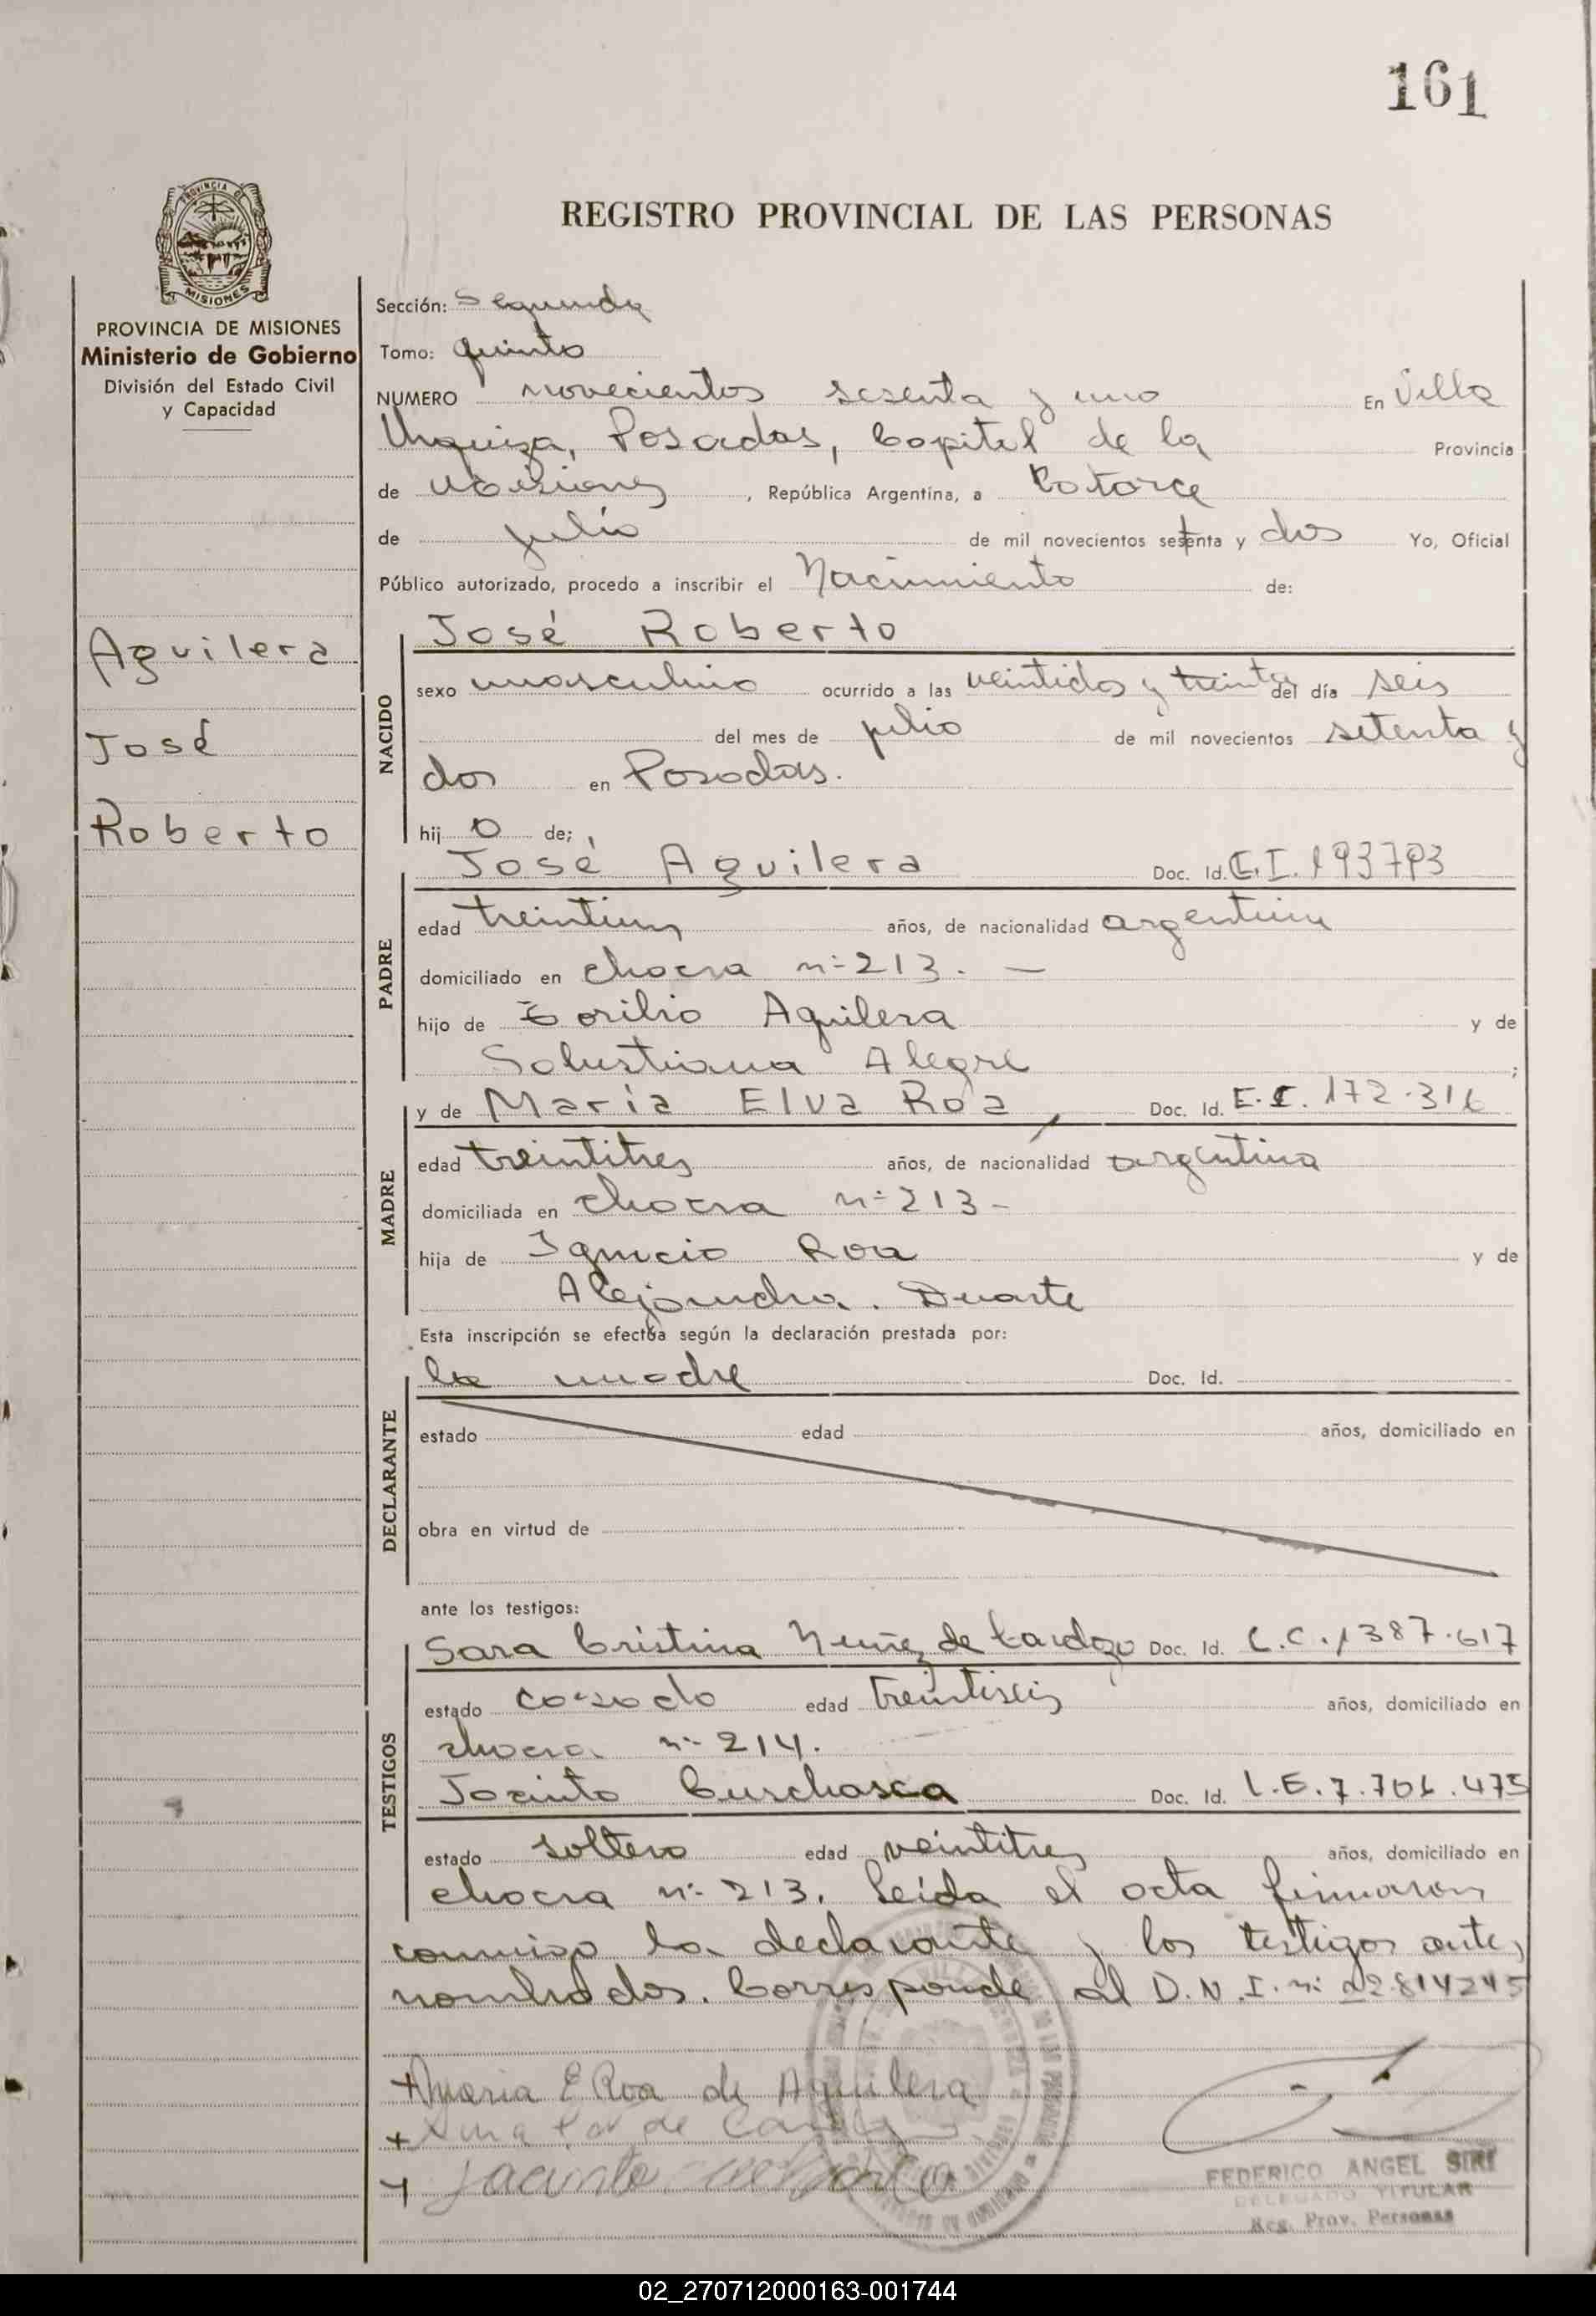 161
PROVINCIA DE
MISIONES
REGISTRO PROVINCIAL DE LAS PERSONAS
PROVINCIA DE MISIONES
Ministerio de Gobierno
División del Estado Civil
y Capacidad
Aguilera
José
Roberto
Sección: Segunda
Tomo: quinto
NUMERO novecientos sesenta y uno En Villa
Urquiza, Posadas, Capital de la Provincia
de Misiones, República Argentina, a Catorce
de julio de mil novecientos setenta y dos Yo, Oficial
Público autorizado, procedo a inscribir el Nacimiento de:
NACIDO
José Roberto
sexo masculino ocurrido a las veintidos y treinta del día seis
del mes de julio de mil novecientos setenta y
dos en Posadas.
hij o de;
PADRE
José Aguilera Doc. Id. C.I. 193793
edad treintiun años, de nacionalidad argentina
domiciliado en chacra nº 213. —
hijo de Aguilera y de
Salustiana Alegre ;
MADRE
y de María Elva Roa, Doc. Id. C.I. 172.316
edad treintitres años, de nacionalidad argentina
domiciliada en chacra nº 213 -
hija de Ignacio Roa y de
Alejandra. Duarte
Esta inscripción se efectúa según la declaración prestada por:
DECLARANTE
la madre Doc. Id.
estado edad años, domiciliado en
obra en virtud de
ante los testigos:
TESTIGOS
Sara Cristina Nuñez de Cardozo Doc. Id. L.C. 1387.617
estado casado edad treintiseis años, domiciliado en
chacra nº 214.
Jacinto Doc. Id. L.E. 7.706.475
estado soltero edad veintitres años, domiciliado en
chacra nº 213. Leída el acta firmaron
conmigo la declarante y los testigos ante,
nombrados. Corresponde al D.N.I. nº 22.814245
+ Maria E Roa de Aguilera
+ de
+ Jacinto
FEDERICO ANGEL SIRI
DELEGADO TITULAR
Reg. Prov. Personas
02_270712000163-001744